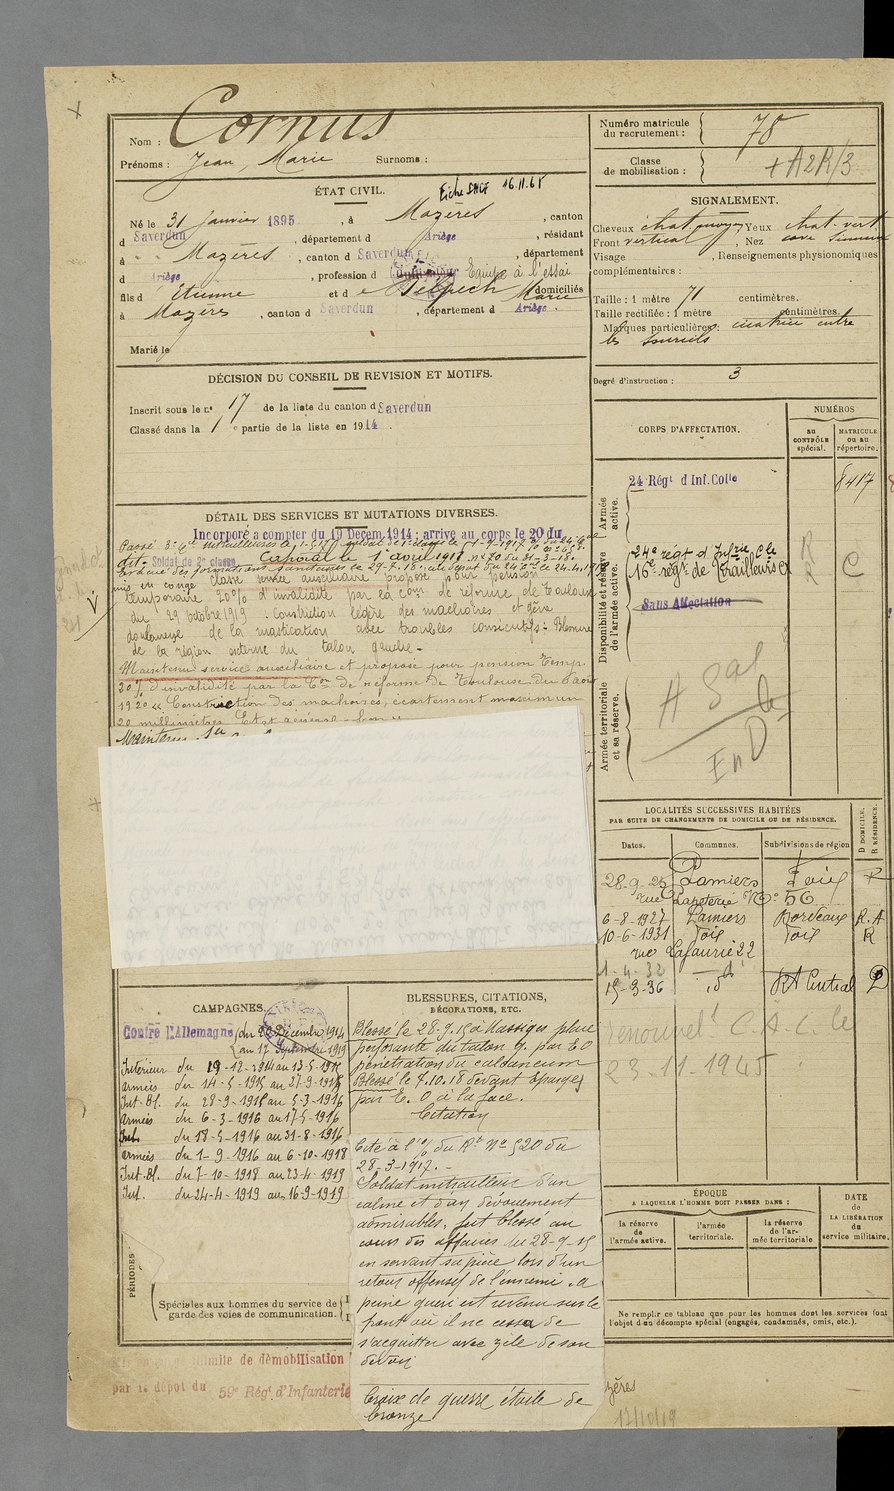 Nom : Cornus
Prénoms : Jean, Marie Surnoms :
Numéro matricule du recrutement : 78
Classe de mobilisation : + A2R/3
ÉTAT CIVIL.
16.11.65
Né le 31 janvier 1895, à Mazères, canton
d Saverdun, département d Ariège, résidant
à Mazères, canton d Saverdun, département
d Ariège, profession d Equipé à l'essai
fils d Etienne et d e Delpech Marie domiciliés
à Mazères, canton d Saverdun, département d Ariège.
Marié le
SIGNALEMENT.
Cheveux chat. moyen Yeux chat. vert.
Front vertical, Nez cave
Visage , Renseignements physionomiques
complémentaires :
Taille : 1 mètre 71 centimètres.
Taille rectifiée : 1 mètre centimètres.
Marques particulières : cicatrice entre
les sourcils
Degré d'instruction : 3
DÉCISION DU CONSEIL DE REVISION ET MOTIFS.
Inscrit sous le n° 17 de la liste du canton d Saverdun
Classé dans la 1e partie de la liste en 1914.
DÉTAIL DES SERVICES ET MUTATIONS DIVERSES.
Incorporé a compter du 19 Decem. 1914; arrivé au corps le 20 du
dit. Soldat de 2e classe Caporal le 1er avril 1918 n° 70 du 31-3-18.
mis en congé Classé service auxiliaire proposé pour pension
temporaire 20% d'invalidité par la com. de réforme de Toulouse
du 29 octobre 1919. Constriction légère des machoires et gêne
douloureuse de la mastication avec troubles consécutifs - Blessure
de la région interne du talon gauche.
Maintenu service auxiliaire et proposé pour pension temp.
20% d'invalidité par la Con de réforme de Toulouse du
1920 « Constriction des machoires, écartement maximum
20 millimètres Etat général
Maintenu
CORPS D'AFFECTATION.
NUMÉROS
au CONTRÔLE spécial.
MATRICULE ou au répertoire.
Armée active.
24 Régt d Inf. Colle 8417
Disponibilité et réserve de l'armée active.
24e régt d'Infrie Cle R
16e régt de Tirailleurs R C
Sans Affectation
Armée territoriale et sa réserve.
LOCALITÉS SUCCESSIVES HABITÉES
PAR SUITE DE CHANGEMENTS DE DOMICILE OU DE RÉSIDENCE.
Dates. Communes. Subdivisions de région D DOMICILE. R RÉSIDENCE.
28-9-25 Pamiers Foix R
rue N° 56
6-8-1927 Pamiers Bordeaux R.A
10-6-1931 Foix Foix R
rue Lafaurie 22
1-4-32 d°
15-3-36 d° RA Central D
Renouvelt C.A.C. le
23-11-1945
CAMPAGNES.
Contre l'Allemagne (du 20 Décembre 1914
(au 17 Septembre 1919
Intérieur du 19-12-1914 au 13-5-1915
armées du 14-5-1915 au 27-9-1915
Int-Bl. du 28-9-1915 au 5-3-1916
armées du 6-3-1916 au 17-5-1916
Int. du 18-5-1916 au 31-8-1916
armées du 1-9-1916 au 6-10-1918
Int-Bl. du 7-10-1918 au 23-4-1919
Int. du 24-4-1919 au 16-9-1919
PÉRIODES
Spéciales aux hommes du service de garde des voies de communication.
BLESSURES, CITATIONS,
DÉCORATIONS, ETC.
Blessé le 28-9-15 à Massiges plaie
perforante du talon g. par E.O
pénétration du calcaneum
Blessé le 7.10.18 devant Eparges
par E. O à la face.
Citation
Cité à l'o/ du Rt N° 520 du
28-3-1917. -
Soldat mitrailleur d'un
calme et d'un dévouement
admirables, fut blessé au
cours des affaires du 28-9-15
en servant sa pièce lors d'un
retour offensif de l'ennemi. A
peine guéri est revenu sur le
front où il ne cessa de
s'acquitter avec zèle de son
devoir
Croix de guerre étoile de
bronze
ÉPOQUE
A LAQUELLE L'HOMME DOIT PASSER DANS :
la réserve de l'armée active.
l'armée territoriale.
la réserve de l'armée territoriale
DATE de LA LIBÉRATION du service militaire.
Ne remplir ce tableau que pour les hommes dont les services font
l'objet d'un décompte spécial (engagés, condamnés, omis, etc.).
de démobilisation
par le dépot du 59e Régt d'Infanterie
zères
17/10/19